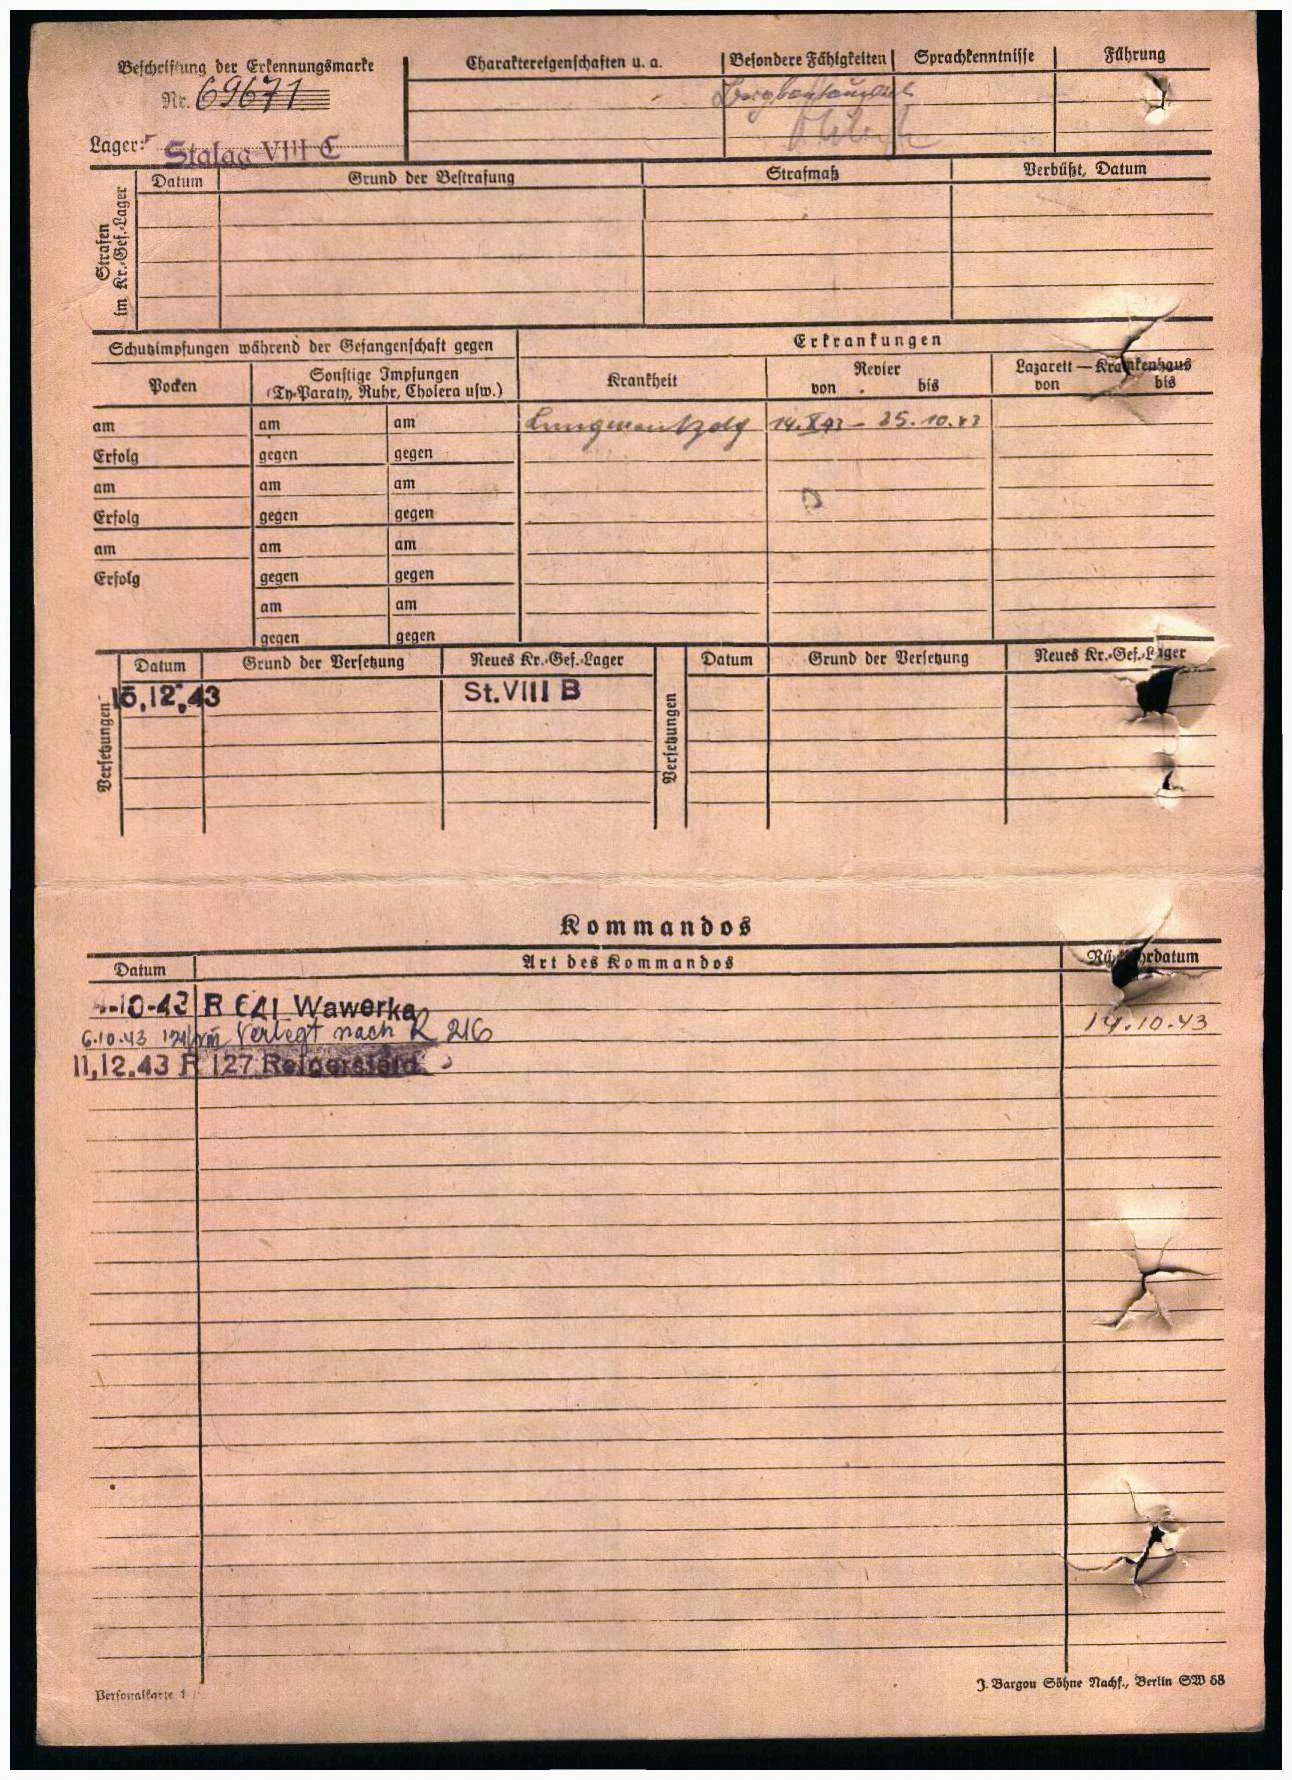 Beschriftung der Erkennungsmarke
Nr. 69671
Lager: Stalag VIII C
Charaktereigenschaften u. a.
Besondere Fähigkeiten
Sprachkenntnisse
Führung
Bergbautauglich
Strafen im Kr.-Gef.-Lager
Datum Grund der Bestrafung Strafmaß Verbüßt, Datum
Schutzimpfungen während der Gefangenschaft gegen
Erkrankungen
Pocken
Sonstige Impfungen
(Ty-Paraty, Ruhr, Cholera usw.)
Krankheit
Revier
von bis
Lazarett — Krankenhaus
von bis
am am am
14.X.43 - 25.10.43
Erfolg gegen gegen
am am am
Erfolg gegen gegen
am am am
Erfolg gegen gegen
am am
gegen gegen
Versetzungen
Datum Grund der Versetzung Neues Kr.-Gef.-Lager
15.12.43 St. VIII B
Versetzungen
Datum Grund der Versetzung Neues Kr.-Gef.-Lager
Kommandos
Datum Art des Kommandos Rückkehrdatum
4-10-43 R 641 Wawerka
6.10.43 Verlegt nach R 216 14.10.43
11.12.43 R 127 Reigersfeld
Personalkarte 1
J. Bargou Söhne Nachf., Berlin SW 68